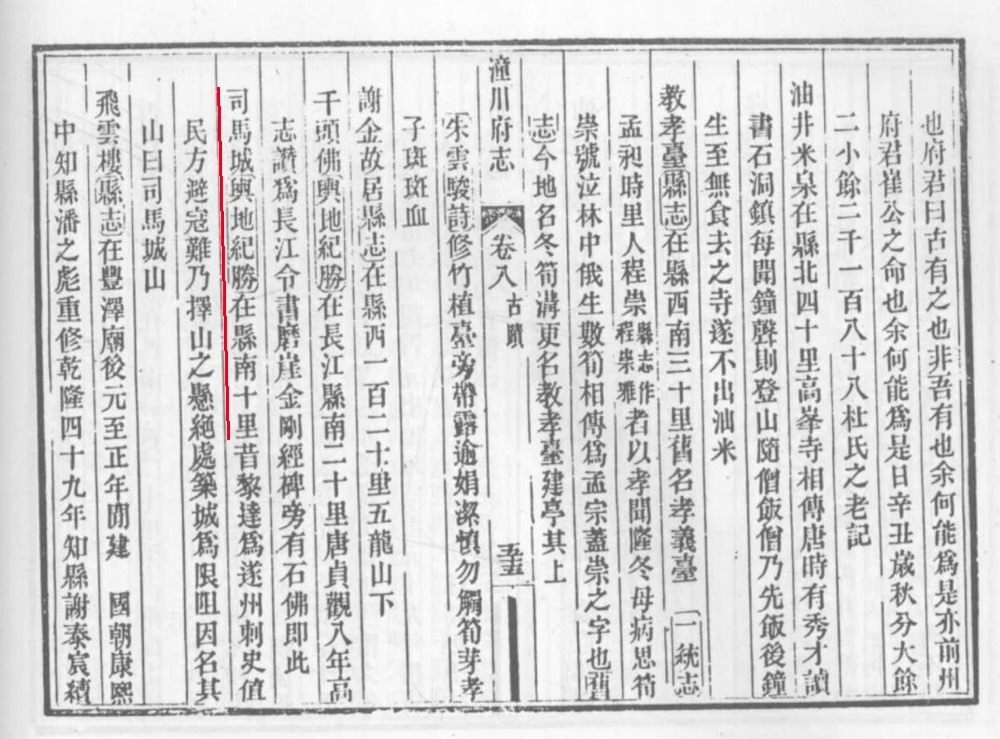 也府君曰古有之也非吾有也余何能爲是亦前州
府君崔公之命也余何能爲是日辛丑歲秋分大餘
二小餘二千一百八十八杜氏之老記
油井米泉在縣北四十里高峯寺相傳唐時有秀才讀
書石洞鎮每聞鐘聲則登山隨僧飯僧乃先飯後鐘
生至無食去之寺遂不出油米
教孝臺縣志在縣西南三十里舊名孝義臺一統志
孟昶時里人程崇縣志作程崇雅者以孝聞隆冬母病思筍
崇號泣林中俄生數筍相傳爲孟宗蓋崇之字也舊
志今地名冬筍溝更名教孝臺建亭其上
潼川府志 卷八 古蹟 五五
朱雲駿詩修竹植臺旁帶露逾娟潔慎勿觸筍芽孝
子斑斑血
謝金故居縣志在縣西一百二十里五龍山下
千頭佛輿地紀勝在長江縣南二十里唐貞觀八年高
志讚爲長江令書磨崖金剛經碑旁有石佛即此
司馬城輿地紀勝在縣南十里昔黎達爲遂州刺史值
民方避寇難乃擇山之懸絕處築城爲限阻因名其
山曰司馬城山
飛雲樓縣志在豐澤廟後元至正年閒建 國朝康熙
中知縣潘之彪重修乾隆四十九年知縣謝泰宸續